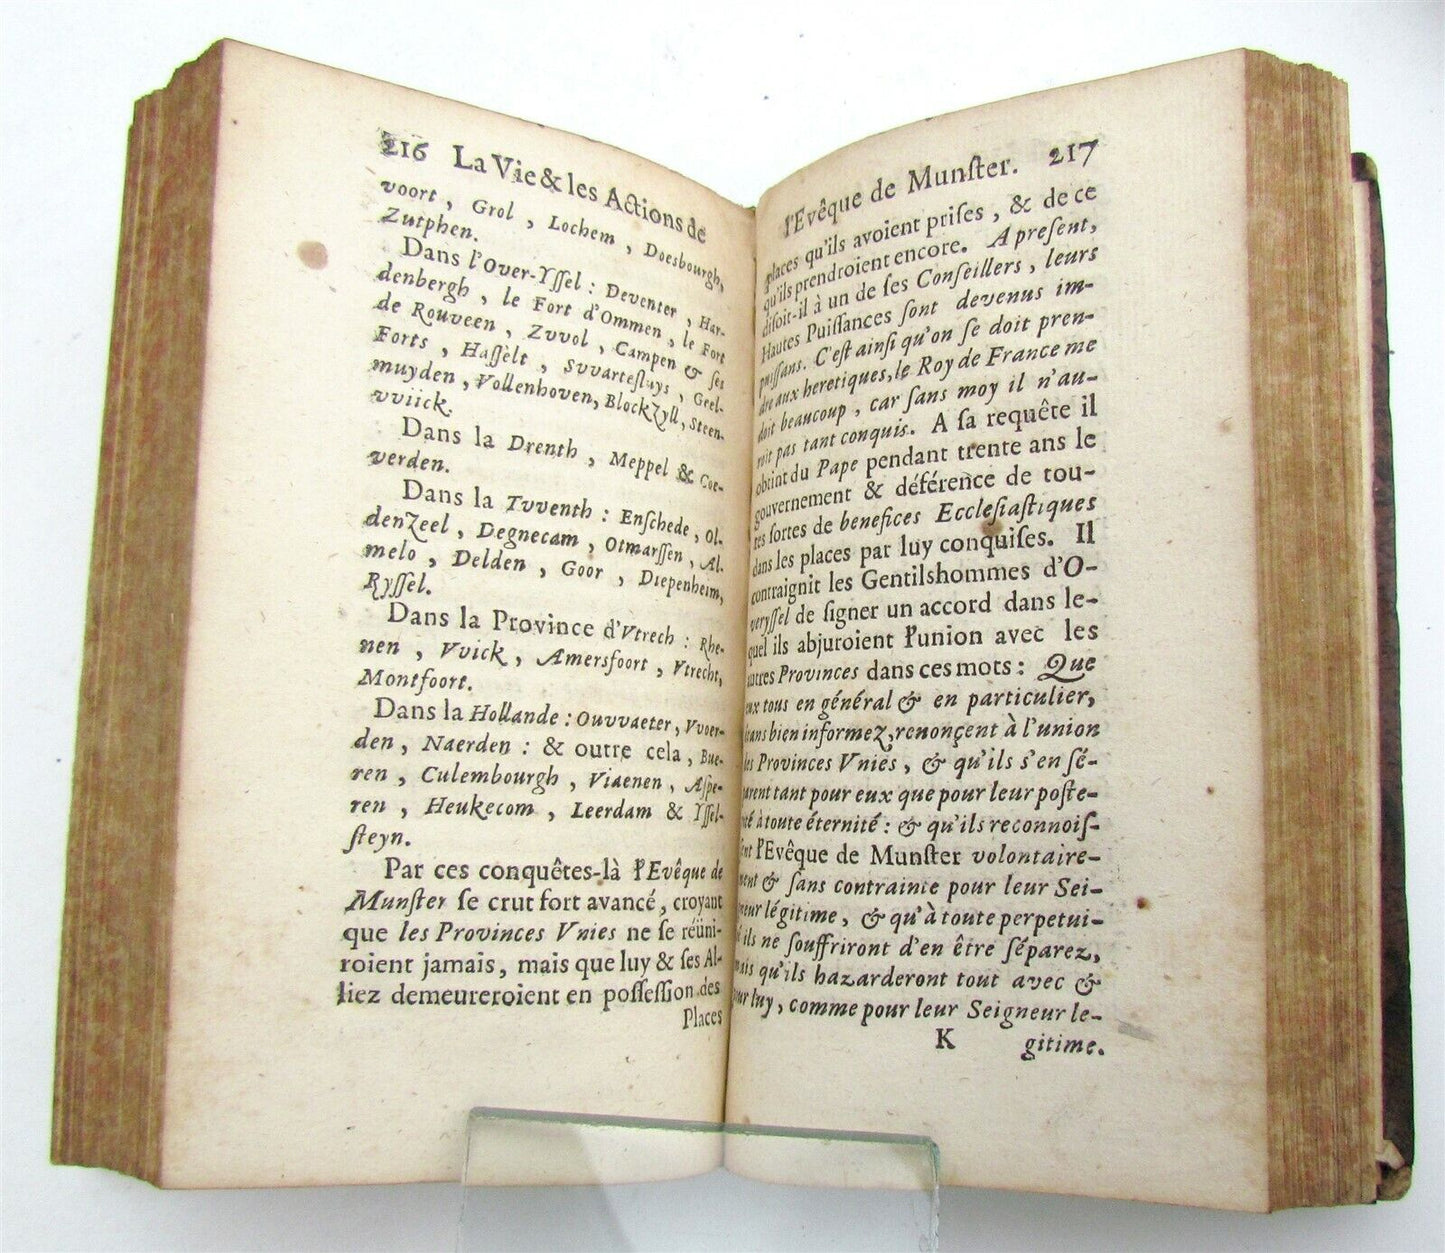 216 La Vie & les Actions de
voort, Grol, Lochem, Doesbourgh,
Zutphen.
Dans l'Over-Yſſel : Deventer, Har-
denbergh, le Fort d'Ommen, le Fort
de Rouveen, Zvvol, Campen & ſes
Forts, Haſſelt, Svvarteſluys, Geel-
muyden, Vollenhoven, Blockzyll, Steen-
vviick.
Dans la Drenth, Meppel & Coe-
verden.
Dans la Tvventh : Enſchede, Ol-
denzeel, Degnecam, Otmarſſen, Al-
melo, Delden, Goor, Diepenheim,
Ryſſel.
Dans la Province d'Vtrech : Rhe-
nen, Vvick, Amersfoort, Vtrecht,
Montfoort.
Dans la Hollande : Ouvvaeter, Vvoer-
den, Naerden : & outre cela, Bue-
ren, Culembourgh, Viaenen, Aſpe-
ren, Heukecom, Leerdam & Yſſel-
ſteyn.
Par ces conquêtes-là l'Evêque de
Munſter ſe crut fort avancé, croyant
que les Provinces Vnies ne ſe réüni-
roient jamais, mais que luy & ſes Al-
liez demeureroient en poſſeſſion des
Places
l'Evêque de Munſter. 217
places qu'ils avoient priſes, & de ce
qu'ils prendroient encore. A preſent,
diſoit-il à un de ſes Conſeillers, leurs
Hautes Puiſſances ſont devenus im-
puiſſans. C'eſt ainſi qu'on ſe doit pren-
dre aux heretiques, le Roy de France me
doit beaucoup, car ſans moy il n'au-
roit pas tant conquis. A ſa requête il
obtint du Pape pendant trente ans le
gouvernement & déférence de tou-
tes ſortes de benefices Eccleſiaſtiques
dans les places par luy conquiſes. Il
contraignit les Gentilshommes d'O-
veryſſel de ſigner un accord dans le-
quel ils abjuroient l'union avec les
autres Provinces dans ces mots : Que
eux tous en général & en particulier,
ſans bien informez, renonçent à l'union
des Provinces Vnies, & qu'ils s'en ſé-
parent tant pour eux que pour leur poſte-
rité à toute éternité : & qu'ils reconnoiſ-
ſent l'Evêque de Munſter volontaire-
ment & ſans contrainte pour leur Sei-
gneur légitime, & qu'à toute perpetui-
té ils ne ſouffriront d'en être ſéparez,
mais qu'ils hazarderont tout avec &
pour luy, comme pour leur Seigneur le-
K gitime.